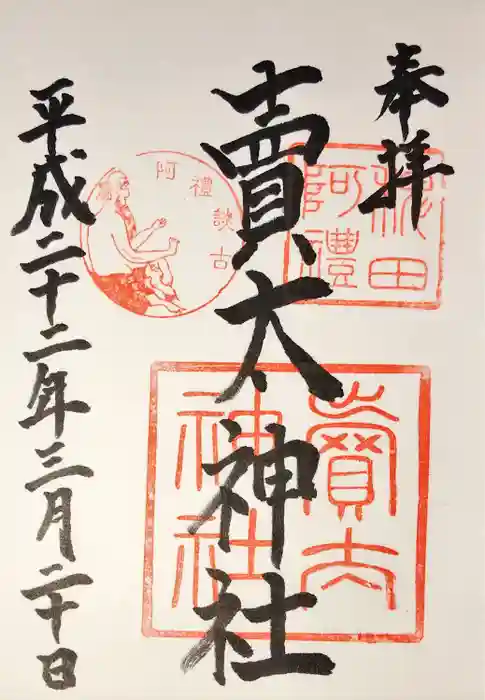 奉拝
稗田
阿禮
賣太神社
賣太
神社
阿禮談古
平成二十二年三月二十日